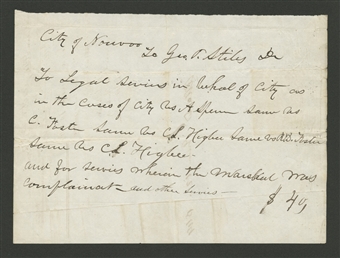 City of Nauvoo
To Geo. P. Stiles Dr
To Legal servises in behal of City as
in the Cases of City vs A Spenn same vs
C. Foster same vs C.L. Higbee same vs R.D. Foster
same vs C.L. Higbee.
and for servies wherein the Marshal was
Complainant - and other servies -
$ 40,